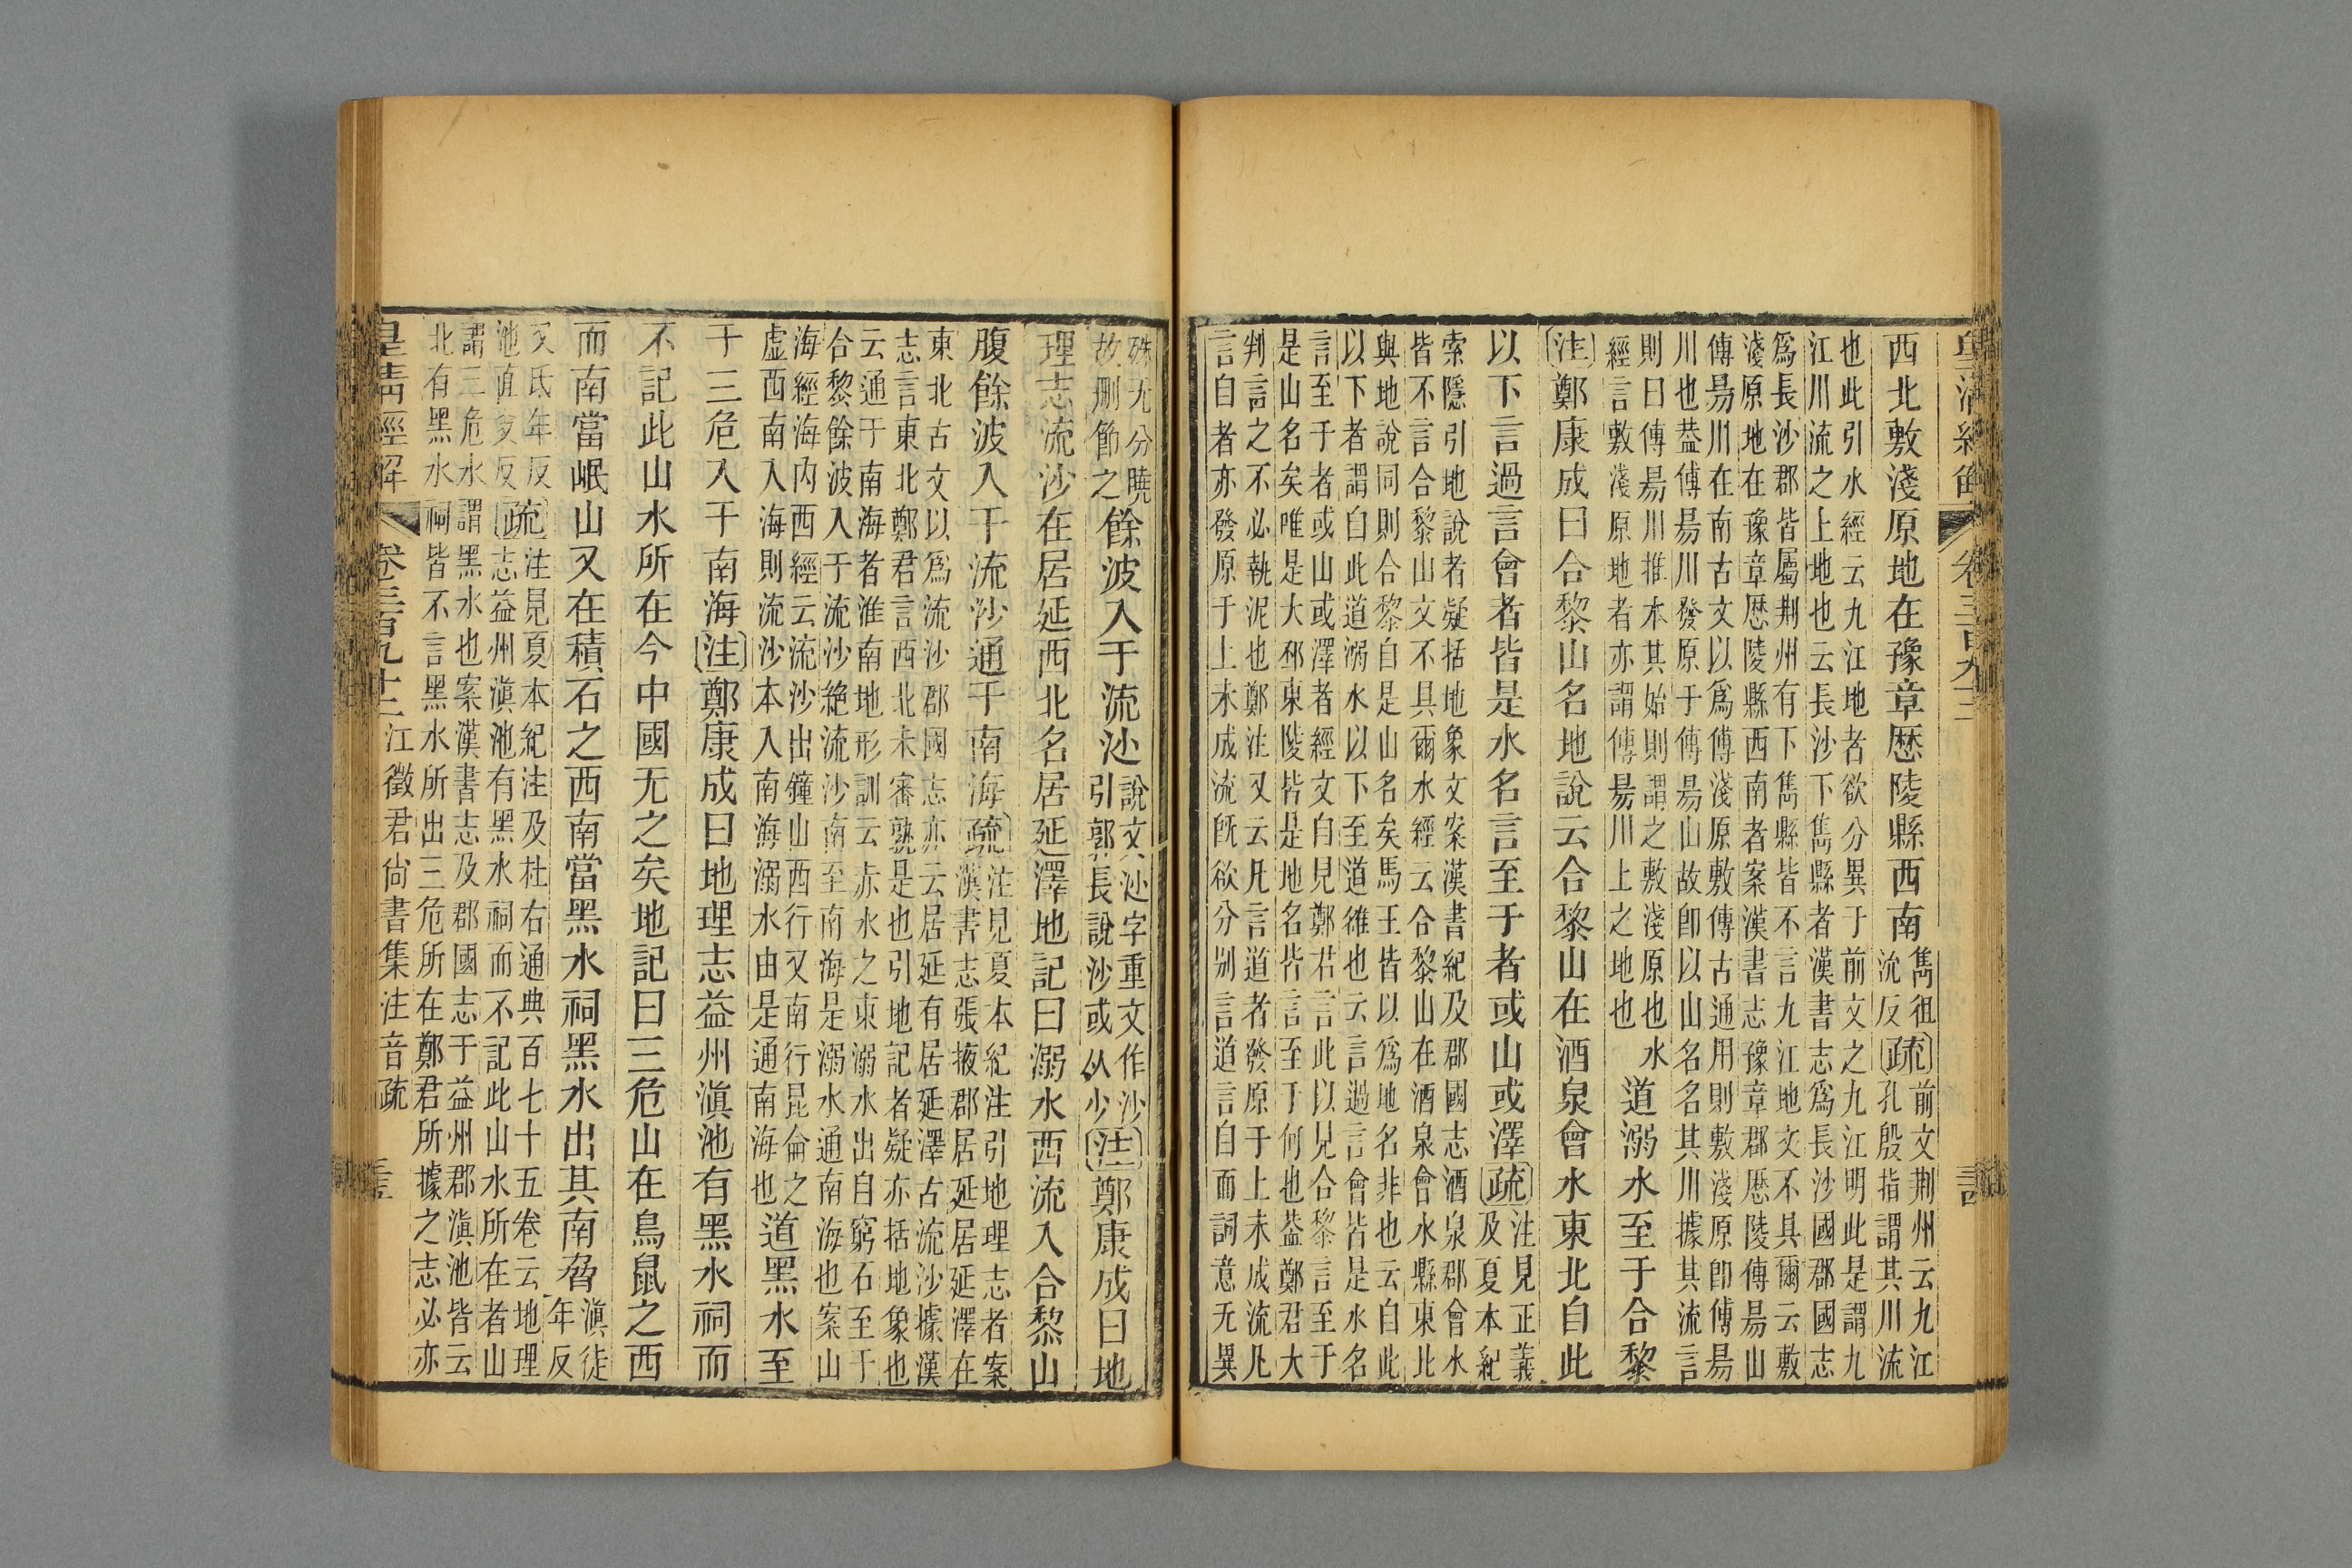 皇清經解
卷三百九十二
西北敷淺原地在豫章厯陵縣西南
雋祖
沇反
疏
前文荆州云九江
孔殷指謂其川流
也此引水經云九江地者欲分異于前文之九江明此是謂九
江川流之上地也云長沙下雋縣者漢書志爲長沙國郡國志
爲長沙郡皆屬荆州有下雋縣皆不言九江地文不具爾云敷
淺原地在豫章厯陵縣西南者案漢書志豫章郡厯陵傅昜山
傅昜川在南古文以爲傅淺原敷傅古通用則敷淺原卽傅昜
川也葢傅昜川發原于傅昜山故卽以山名名其川據其流言
則曰傅昜川推本其始則謂之敷淺原也 水
經言敷淺原地者亦謂傅昜川上之地也
道溺水至于合黎
注鄭康成曰合黎山名地說云合黎山在酒泉會水東北自此
以下言過言會者皆是水名言至于者或山或澤疏
注見正義
及夏本紀
索隱引地說者疑括地象文案漢書紀及郡國志酒泉郡會水
皆不言合黎山文不具爾水經云合黎山在酒泉會水縣東北
與地說同則合黎自是山名矣馬王皆以爲地名非也云自此
以下者謂自此道溺水以下至道雒也云言過言會皆是水名
言至于者或山或澤者經文自見鄭君言此以見合黎言至于
是山名矣唯是大邳東陵皆是地名皆言至于何也葢鄭君大
判言之不必執泥也鄭注又云凡言道者發原于上未成流凡
言自者亦發原于上未成流旣欲分别言道言自而詞意无異
殊无分曉
故刪節之
餘波入于流沙
說文沙字重文作沙
引郭長說沙或从少
注鄭康成曰地
理志流沙在居延西北名居延澤地記曰溺水西流入合黎山
腹餘波入于流沙通于南海疏
注見夏本紀注引地理志者案
漢書志張掖郡居延居延澤在
東北古文以爲流沙郡國志亦云居延有居延澤古流沙據漢
志言東北鄭君言西北未審孰是也引地記者疑亦括地象也
云通于南海者淮南地形訓云赤水之東溺水出自窮石至于
合黎餘波入于流沙絶流沙南至南海是溺水通南海也案山
海經海内西經云流沙出鐘山西行又南行昆侖之
虛西南入海則流沙本入南海溺水由是通南海也
道黑水至
于三危入于南海注鄭康成曰地理志益州滇池有黑水祠而
不記此山水所在今中國无之矣地記曰三危山在鳥鼠之西
而南當岷山又在積石之西南當黑水祠黑水出其南脅
滇徒
年反
又氐年反
池直多反
疏
注見夏本紀注及杜右通典百七十五卷云地理
志益州滇池有黑水祠而不記此山水所在者山
謂三危水謂黑水也案漢書志及郡國志于益州郡滇池皆云
北有黑水祠皆不言黑水所出三危所在鄭君所據之志必亦
皇清經解
卷三百九十二
江徵君尙書集注音疏